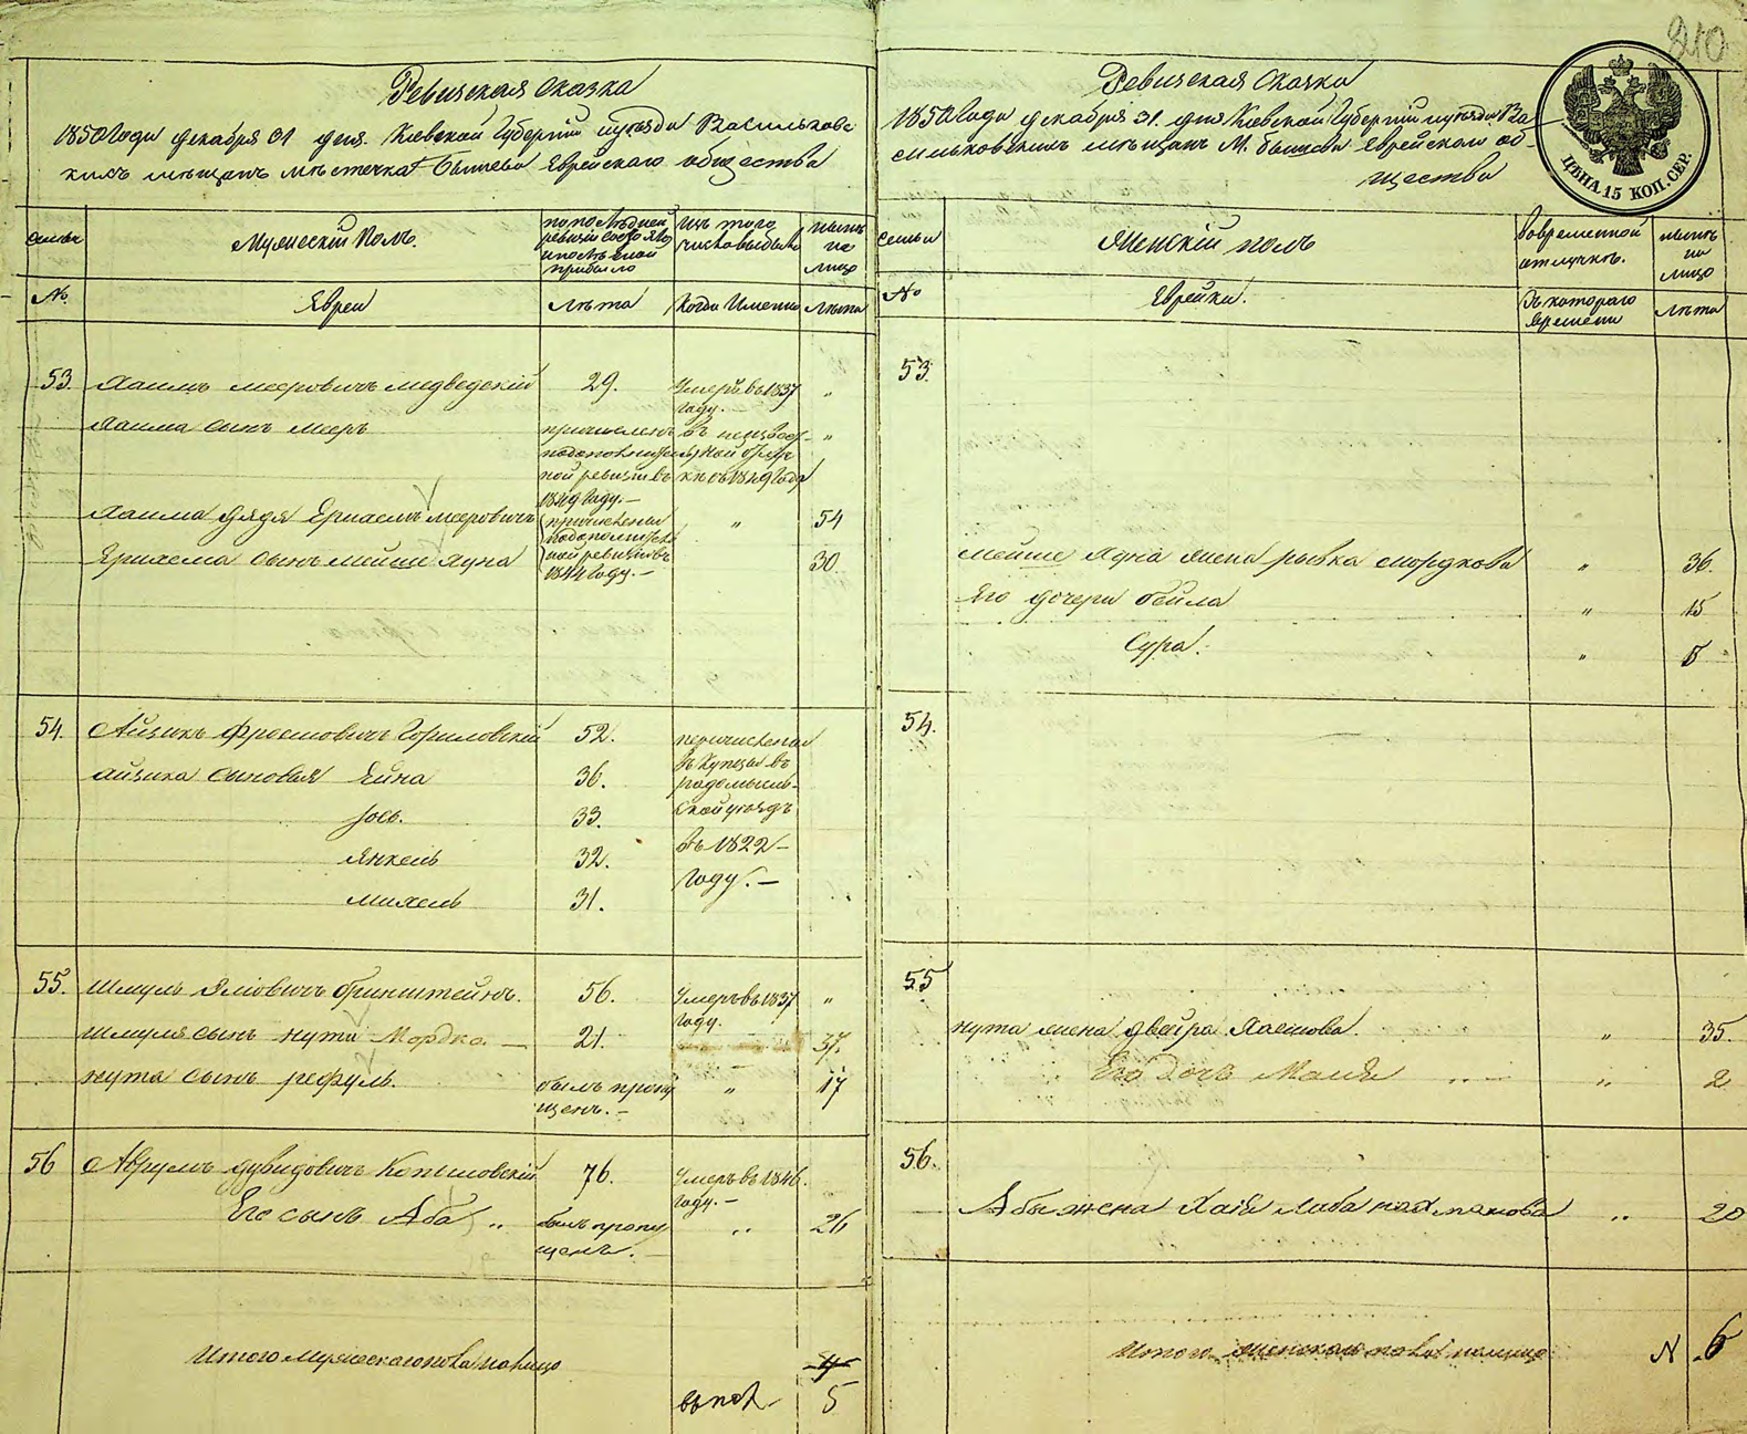 210
Ревизская сказка
1850 Года декабря 31 дня. Киевской Губернiи уезда Васильковс
кихъ мещанъ местечка Бышева Еврейскаго общества
семьи
Мужескiй Полъ.
по последней
ревизiи состояло
и после оной
прибыло
Изъ того
числа выбыло
ныне
на
лицо
№
Евреи
лета
Когда Именно
лета
53.
Хаимъ мееровичъ медведскiй
29.
Умеръ въ 1837
году. —
"
Хаима сынъ мееръ
причисленъ
ной ревизiи въ
1849 году. —
"
Хаима дядя Ерихемъ мееровичъ
причислены
ной ревизiи въ
1844 году. —
"
54
Ерихема сынъ мейше Юдка
30.
54.
Айзикъ Фроимовичъ Гориловскiй
52.
перечислены
въ Купцы въ
радомысль-
ской уездъ
въ 1822 —
году. —
айзика сыновья Ейна
36.
Іось.
33.
Янкель
32.
михель
31.
55.
Шмуль Элiовичъ бринштейнъ.
56.
Умеръ въ 1837
году.
"
Шмуля сынъ нута Мордко. —
21.
37.
нута сынъ рефуль.
былъ пропу
щенъ. —
"
17
56
Аврумъ дувидовичъ Копиловскiй
76.
Умеръ въ 1846.
году. —
Его сынъ Аба
былъ пропу
щенъ. —
"
26
Итого мужескаго пола на лицо
4
5
Ревизская Сказка
1850 Года декабря 31. дня Киевской Губернiи уезда Ва
сильковскихъ мещанъ М. бышева Еврейскаго об-
щества
ЦѢНА 15 КОП. СЕР.
семьи
Женскiй полъ
во временной
отлучке.
ныне
на
лицо
№
Еврейки.
Съ котораго
времени
лета
53.
мейше Юдка жена рывка смордкова
"
36.
Его дочери бейла
"
15
Сура.
"
8
54.
55
нута жена двейра Хаимова.
"
35.
Его Дочь Маля
"
2
56.
Абы жена Хаiя Либа нахманова
"
20
Итого женскаго пола на лицо
6